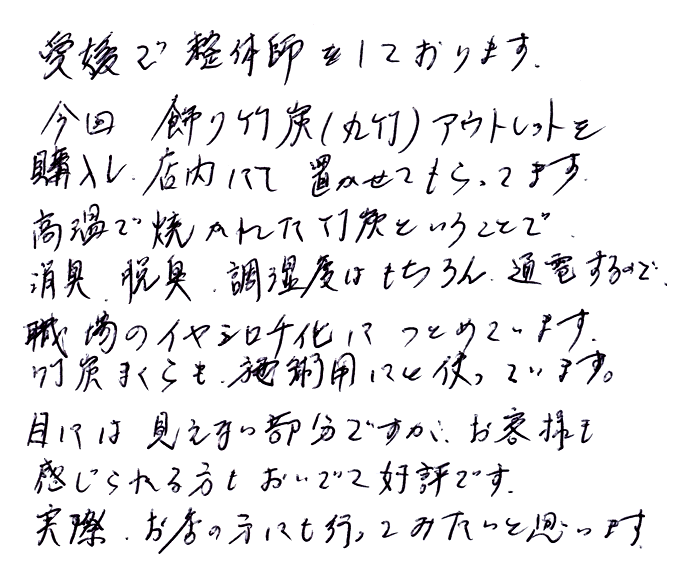 愛媛で整体師をしております.
今回 飾り竹炭(丸竹)アウトレットを
購入し.店内にて 置かせてもらってます.
高温で焼かれた竹炭ということで.
消臭.脱臭.調湿度はもちろん.通電するので.
職場のイヤシロチ化につとめています.
竹炭まくらも.施術用にと使っています。
目には見えない部分ですが、お客様も
感じられる方もおいでで好評です.
実際.お店の方にも行ってみたいと思います